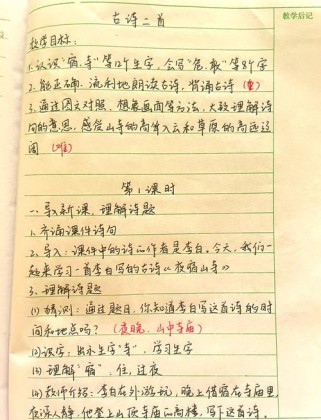 教学后记
古诗二首
教学目标:
1.认识“宿、寺”等12个生字,会写“危、敢”等8个字
2.能正确、流利地朗读古诗,背诵古诗(重)
3.通过图文对照、想象画面等方法,大致理解诗
句的意思,感受山寺的高耸入云和草原的高远辽
阔(难)
第1课时
一、导入新课,理解诗题
1.齐诵课件诗句
2.导入:课件中的诗的作者是李白。今天,我们一
起来学习一首李白写的古诗《夜宿山寺》
3.理解诗题
(1)猜测:通过题目,你知道李白写这首诗的时
间和地点吗?(夜晚,山中寺庙)
(2)识字:出示生字“寺”,学习生字
(3)理解“宿”:住,过夜
(4)教师介绍:李白在外游玩,晚上借宿在寺庙里
夜深人静,他登上山顶寺庙的高楼,写下这首诗。